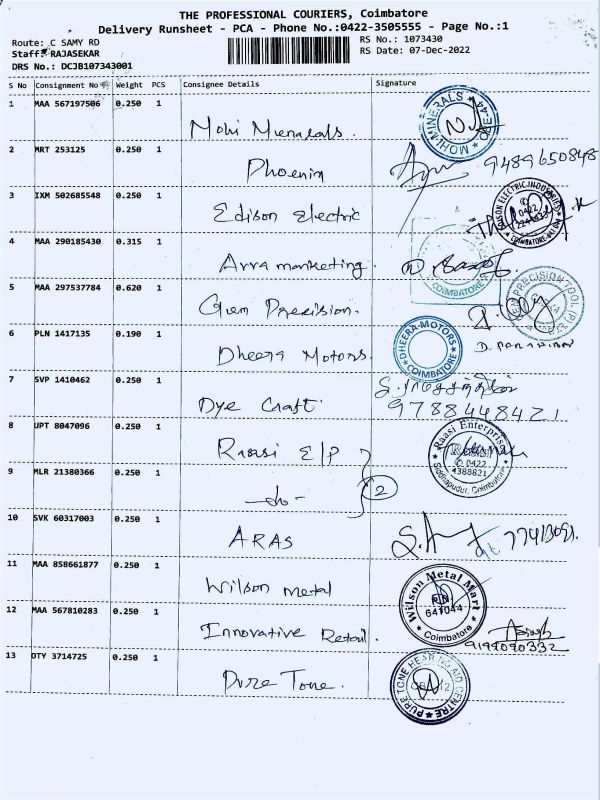 THE PROFESSIONAL COURIERS, Coimbatore
Delivery Runsheet - PCA - Phone No.:0422-3505555 - Page No.:1
Route: C SAMY RD
Staff: RAJASEKAR
DRS No.: DCJB107343001
RS No.: 1073430
RS Date: 07-Dec-2022
S No Consignment No Weight PCS Consignee Details Signature
1 MAA 567197506 0.250 1
Mohi Minerals. MOHI-MINERALS
2 MRT 253125 0.250 1
Phoenix 9489650848
3 IXM 502685548 0.250 1
Edison Electric COIMBATORE
4 MAA 290185430 0.315 1
Arra marketing. COIMBATORE
5 MAA 297537784 0.620 1
Gem Precision. PRECISION TOOL (P)
6 PLN 1417135 0.190 1
Dheera Motors. DHEERA-MOTORS COIMBATORE
7 SVP 1410462 0.250 1
Dye Craft 9788448421
8 UPT 8047096 0.250 1
Raasi E/P Raasi Enterprise 0422 4388821 Siddhapudur, Coimbatore
9 MLR 21380366 0.250 1
-do- 2
10 SVK 60317003 0.250 1
ARAS
11 MAA 858661877 0.250 1
Wilson metal Wilson Metal Mart PIN 641044 Coimbatore
12 MAA 567810283 0.250 1
Innovative Retail.
13 DTY 3714725 0.250 1
Pure Tone. PURE TONE HEARING AID CENTRE